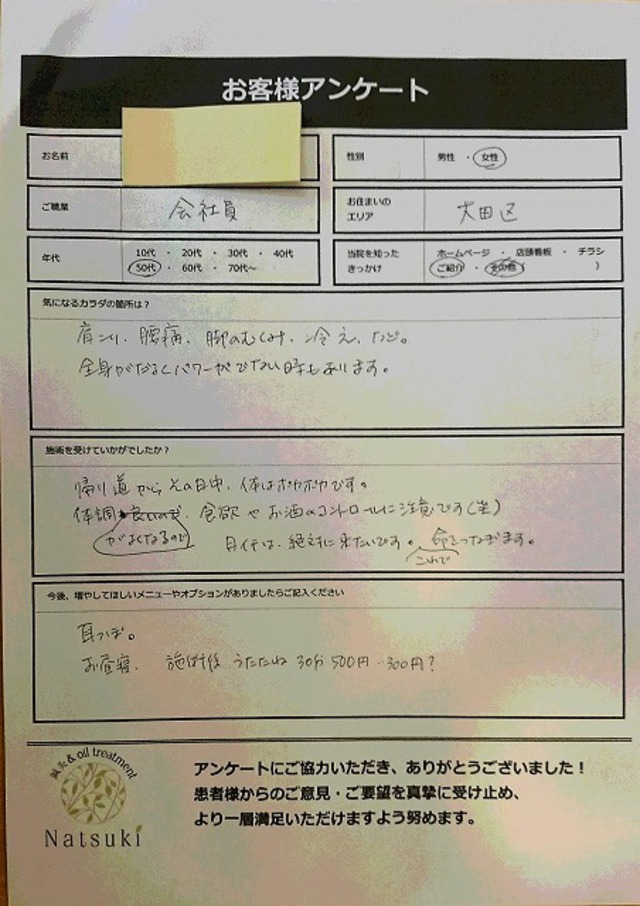 お客様アンケート
お名前
性別 男性 ・ 女性
ご職業 会社員
お住まいの
エリア 大田区
年代 10代 ・ 20代 ・ 30代 ・ 40代
50代 ・ 60代 ・ 70代～
当院を知った
きっかけ ホームページ ・ 店頭看板 ・ チラシ
ご紹介 ・ その他 ( )
気になるカラダの箇所は？
肩こり、腰痛、脚のむくみ、冷え、など。
全身がだるくパワーがでない時もあります。
施術を受けていかがでしたか？
帰り道からその日中、体はポカポカです。
体調 良いので、食欲やお酒のコントロールに注意です(笑)
がよくなるので
月イチは、絶対に来たいです。命をつなぎます。
これで
今後、増やしてほしいメニューやオプションがありましたらご記入ください
耳つぼ。
お昼寝、施術後うたたね 30分 500円 ‥300円？
鍼灸 & oil treatment
Natsuki
アンケートにご協力いただき、ありがとうございました！
患者様からのご意見・ご要望を真摯に受け止め、
より一層満足いただけますよう努めます。